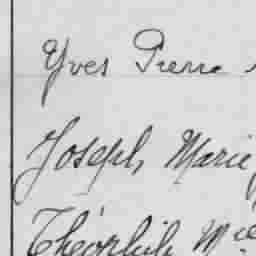 Yves Pierre
Joseph, Marie
Théophile Mie